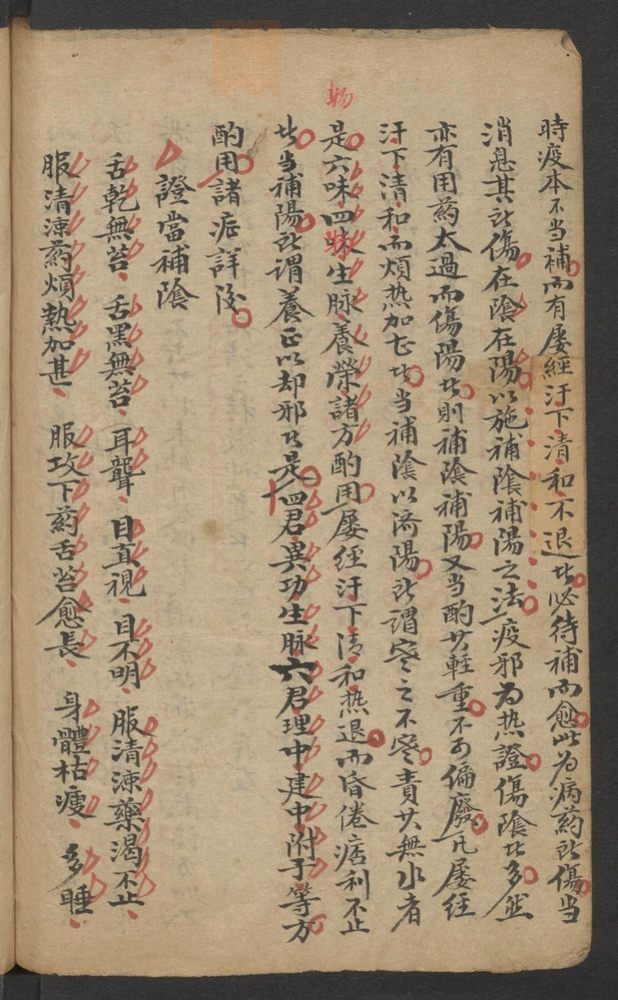 時疫本不当補而有屡經汗下清和不退𱍸必待補而愈此为病药所傷当
消息其所傷在隂在陽以施補隂補陽之法疫邪为热證傷隂𱍸多然
亦有用药太過而傷陽𱍸則補隂補陽又当酌其軽重不可偏廢凡屡经
汗下清和而煩热加甚𱍸当補隂以济陽所謂寒之不寒責其無水者
是六味四物生脉養榮諸方酌用屡经汗下清和热退而昏倦痞利不止
𱍸当補陽所謂養正以却邪𱍸是四君異功生脉六君理中建中附子等方
酌用諸症詳後
證當補隂
舌乾無苔、舌黑無苔、耳聾、目直視、目不明、服清凉藥渴不止、
服清凉药煩熱加甚、服攻下药舌苔愈長、身體枯瘦、多睡、